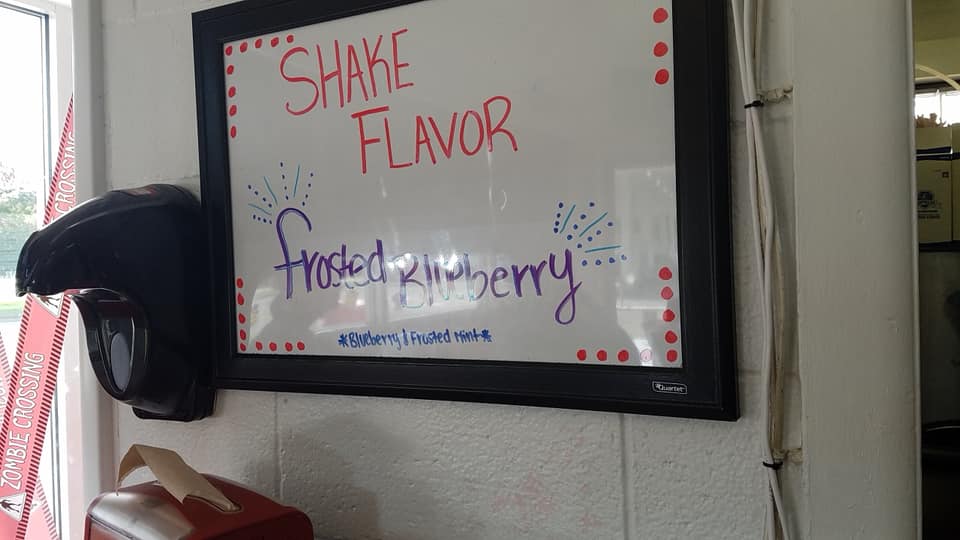 SHAKE
FLAVOR
frosted Blueberry
*Blueberry & Frosted Mint*
Quartet
ZOMBIE CROSSING
CROSSING